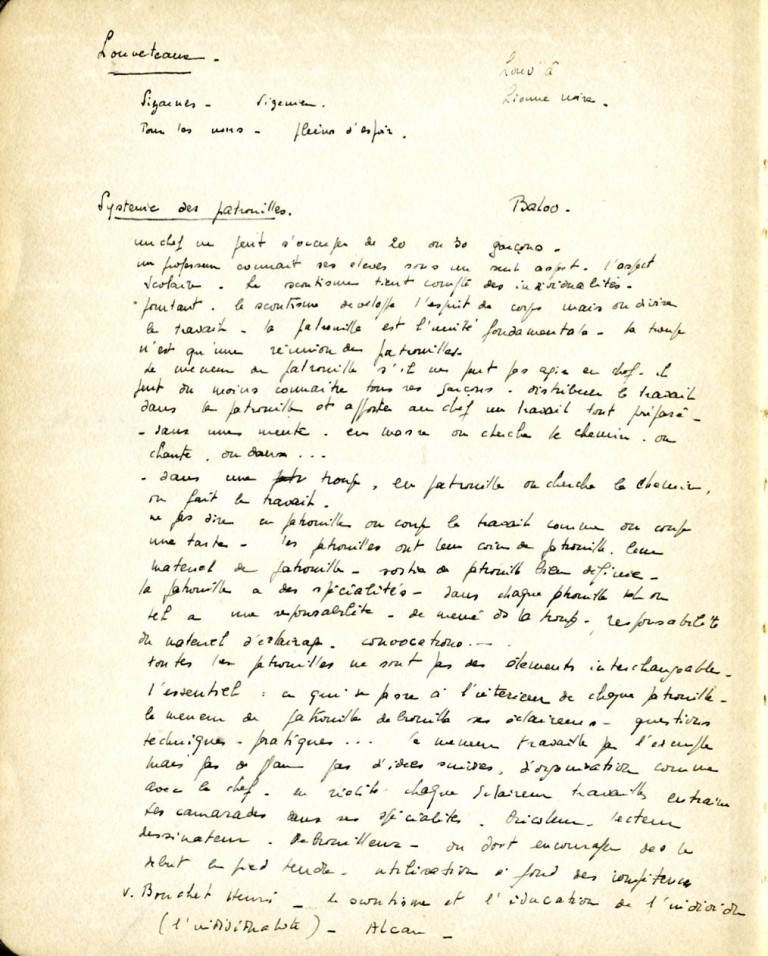 Louveteaux.
Louv' à
Sizaines - Sizenier.
Lionne noire.
Tous les noms - pleins d'espoir.
Système des patrouilles.
Baloo.
un chef ne peut s'occuper de 20 ou 30 garçons -
un professeur connait ses élèves sous un seul aspect. l'aspect
scolaire. Le scoutisme tient compte des individualités.
pourtant. le scoutisme développe l'esprit de corps mais on divise
le travail - la patrouille est l'unité fondamentale - la troupe
n'est qu'une réunion des patrouilles.
Le meneur de patrouille s'il ne peut pas agir en chef. il
peut du moins connaitre tous ses garçons. distribuer le travail
dans la patrouille et apporter au chef un travail tout préparé -
- dans une meute. en masse on cherche le chemin. on
chante, on danse ...
- dans une troupe, en patrouille on cherche le chemin,
on fait le travail.
ne pas dire en patrouille on coupe le travail comme on coupe
une tarte - les patrouilles ont leur coin de patrouille. leur
materiel de patrouille - sortie de patrouille bien définie -
la patrouille a des spécialités - dans chaque patrouille tel ou
tel a une responsabilité - de même de la troupe. responsabilité
du materiel d'éclairage. convocations ...
toutes les patrouilles ne sont pas des éléments interchangeables -
l'essentiel : ce qui se passe à l'intérieur de chaque patrouille -
le meneur de patrouille débrouille ses éclaireurs - questions
techniques - pratiques ... le meneur travaille par l'exemple
mais pas de plan pas d'idées suivies, d'organisation comme
avec le chef. en réalité chaque éclaireur travaille, entraine
ses camarades dans ses spécialités. Bricoleur. lecteur
dessinateur. Debrouilleur - on doit encourager dès le
début le pied tendre. utilisation à fond des compétences
v. Bouchet Henri - le scoutisme et l'éducation de l'individu
(l'individualité) - Alcan -